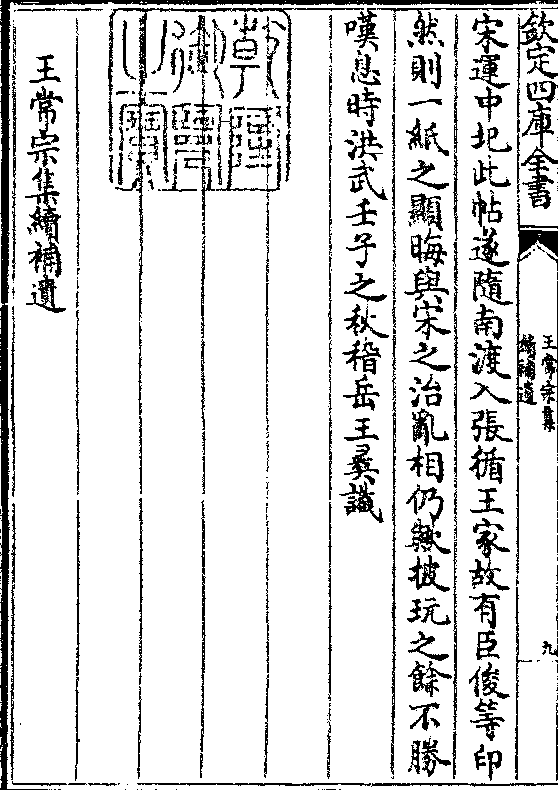 欽定四庫全書
王常宗集
續補遺
九
宋運中圮此帖遂隨南渡入張循王家故有臣俊等印
然則一紙之顯晦與宋之治亂相仍歟披玩之餘不勝
嘆息時洪武壬子之秋稽岳王彝識
乾隆
御覽
之寶
王常宗集續補遺